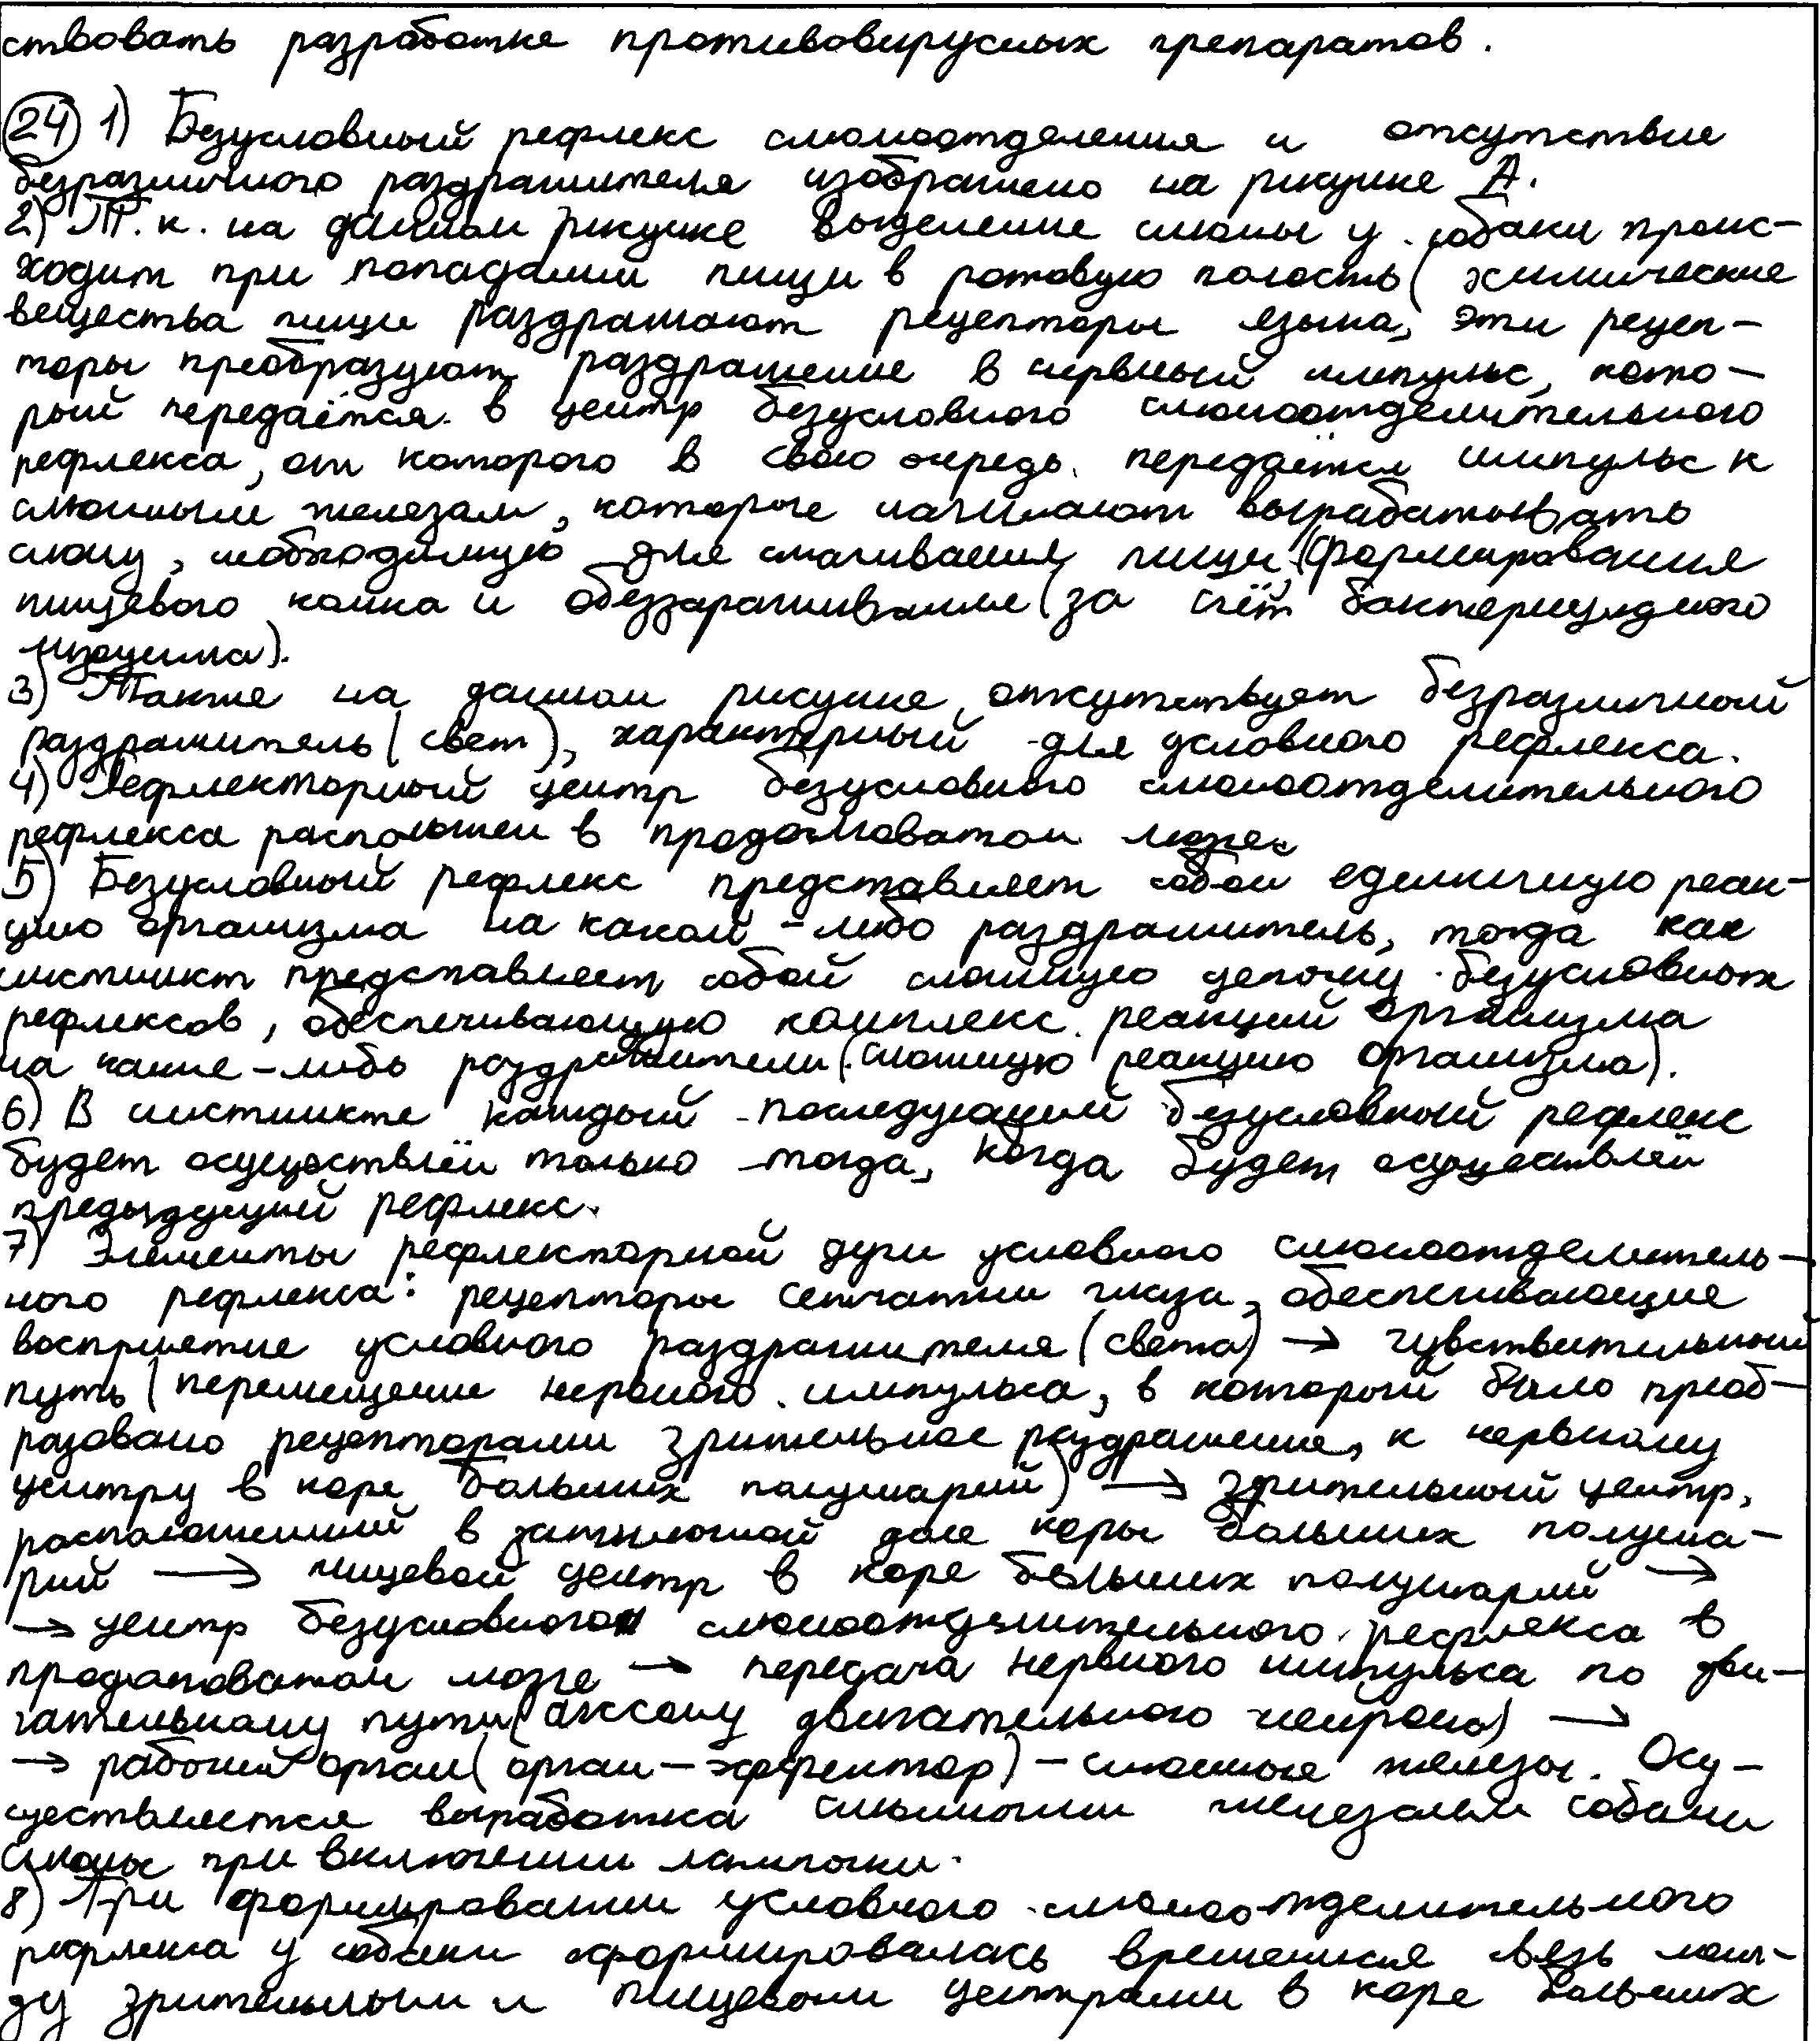 ствовать разработке противовирусных препаратов.
24 1) Безусловный рефлекс слюноотделения и отсутствие
безразличного раздражителя изображено на рисунке А.
2) Т.к. на данном рисунке выделение слюны у собаки проис-
ходит при попадании пищи в ротовую полость (химические
вещества пищи раздражают рецепторы языка, эти рецеп-
торы преобразуют раздражение в нервный импульс, кото-
рый передаётся в центр безусловного слюноотделительного
рефлекса, от которого в свою очередь передаётся импульс к
слюнным железам, которые начинают вырабатывать
слюну, необходимую для смачивания пищи, формирования
пищевого комка и обеззараживание (за счёт бактерицидного
лизоцима).
3) Также на данном рисунке отсутствует безразличный
раздражитель (свет), характерный для условного рефлекса.
4) Рефлекторный центр безусловного слюноотделительного
рефлекса расположен в продолговатом мозге.
5) Безусловный рефлекс представляет собой единичную реак-
цию организма на какой-либо раздражитель, тогда как
инстинкт представляет собой сложную цепочку безусловных
рефлексов, обеспечивающую комплекс реакций организма
на какие-либо раздражители (сложную реакцию организма).
6) В инстинкте каждый последующий безусловный рефлекс
будет осуществлён только тогда, когда будет осуществлён
предыдущий рефлекс.
7) Элементы рефлекторной дуги условного слюноотделитель-
ного рефлекса: рецепторы сетчатки глаза, обеспечивающие
восприятие условного раздражителя (света) → чувствительный
путь (перемещение нервного импульса, в который было преоб-
разовано рецепторами зрительное раздражение, к нервному
центру в коре больших полушарий) → зрительный центр,
расположенный в затылочной доле коры больших полуша-
рий → пищевой центр в коре больших полушарий →
→ центр безусловного слюноотделительного рефлекса в
продолговатом мозге → передача нервного импульса по дви-
гательному пути (аксону двигательного нейрона) →
→ рабочий орган (орган-эффектор) - слюнные железы. Осу-
ществляется выработка слюнными железами собаки
слюны при включении лампочки.
8) При формировании условного слюноотделительного
рефлекса у собаки сформировалась временная связь меж-
ду зрительным и пищевым центрами в коре больших